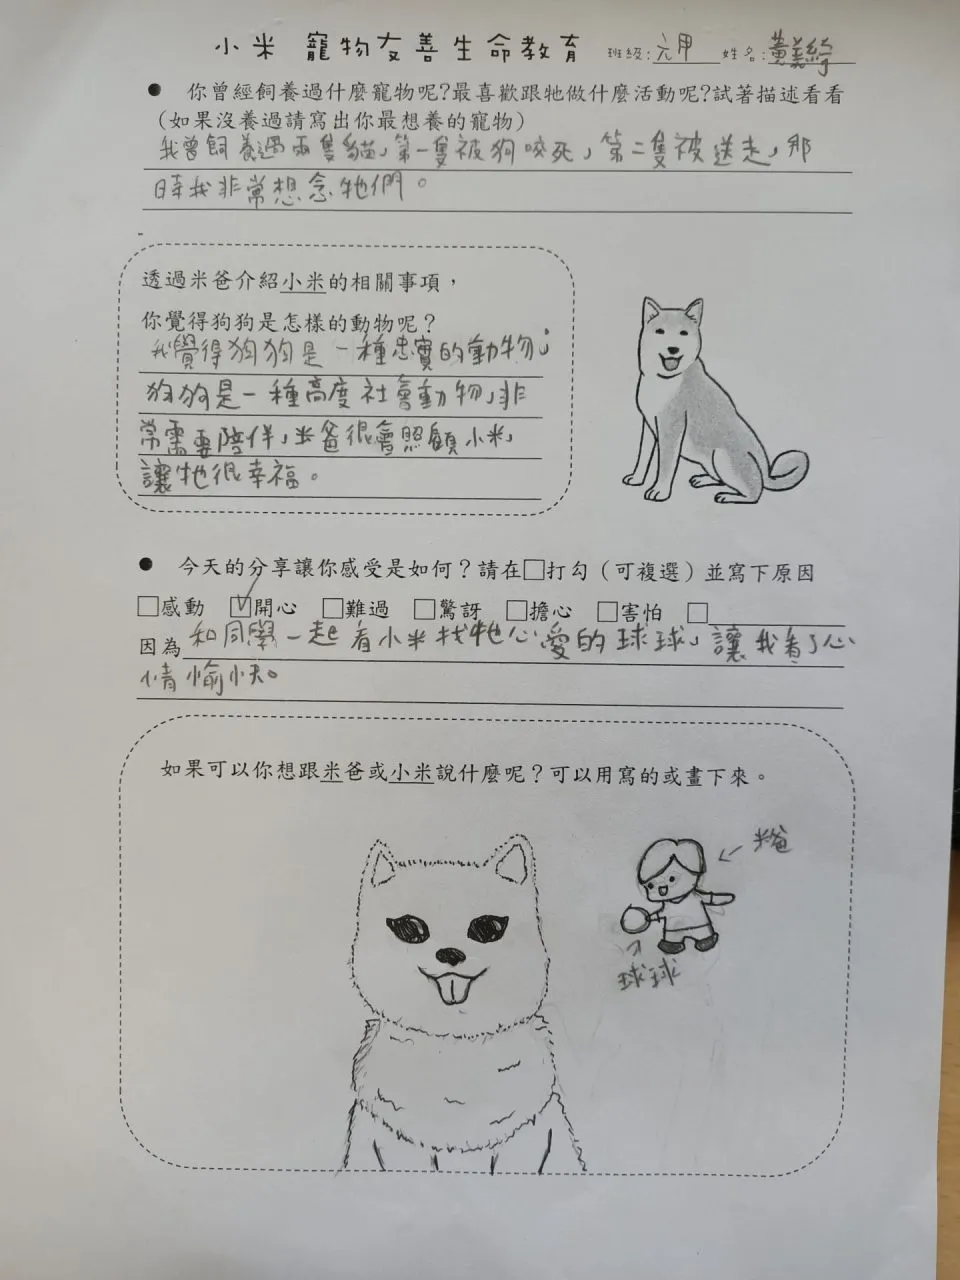 小米 寵物友善生命教育 班級:六甲 姓名:黃美綺
● 你曾經飼養過什麼寵物呢?最喜歡跟牠做什麼活動呢?試著描述看看
(如果沒養過請寫出你最想養的寵物)
我曾飼養過兩隻貓,第一隻被狗咬死,第二隻被送走,那
時我非常想念牠們。
透過米爸介紹小米的相關事項,
你覺得狗狗是怎樣的動物呢?
我覺得狗狗是一種忠實的動物,
狗狗是一種高度社會動物,非
常需要陪伴,米爸很會照顧小米,
讓牠很幸福。
● 今天的分享讓你感受是如何?請在□打勾(可複選)並寫下原因
□感動 ☑開心 □難過 □驚訝 □擔心 □害怕 □
因為和同學一起看小米找牠心愛的球球,讓我看了心
情愉快。
如果可以你想跟米爸或小米說什麼呢?可以用寫的或畫下來。
米爸
球球